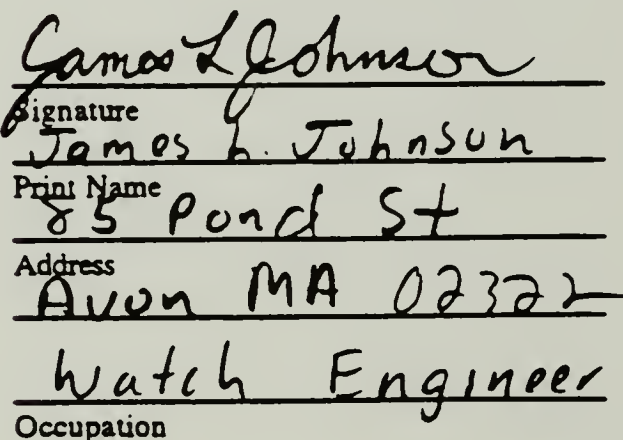 James L Johnson
Signature
James L. Johnson
Print Name
85 Pond St
Address
Avon MA 02322
Watch Engineer
Occupation